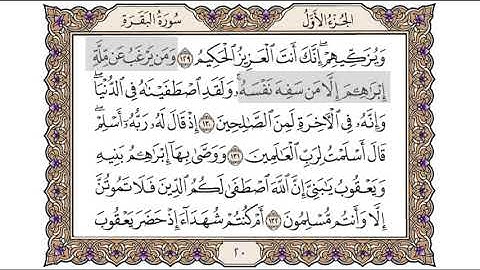 الجزء الأول سورة البقرة
وَيُزَكِّيهِمْ ۚ إِنَّكَ أَنتَ الْعَزِيزُ الْحَكِيمُ ﴿١٢٩﴾ وَمَن يَرْغَبُ عَن مِّلَّةِ
إِبْرَاهِـۧمَ إِلَّا مَن سَفِهَ نَفْسَهُ ۚ وَلَقَدِ اصْطَفَيْنَـٰهُ فِى الدُّنْيَا ۖ
وَإِنَّهُ فِى الْآخِرَةِ لَمِنَ الصَّـٰلِحِينَ ﴿١٣٠﴾ إِذْ قَالَ لَهُ رَبُّهُ أَسْلِمْ ۖ
قَالَ أَسْلَمْتُ لِرَبِّ الْعَـٰلَمِينَ ﴿١٣١﴾ وَوَصَّىٰ بِهَا إِبْرَاهِـۧمُ بَنِيهِ
وَيَعْقُوبُ يَـٰبَنِىَّ إِنَّ اللَّهَ اصْطَفَىٰ لَكُمُ الدِّينَ فَلَا تَمُوتُنَّ
إِلَّا وَأَنتُم مُّسْلِمُونَ ﴿١٣٢﴾ أَمْ كُنتُمْ شُهَدَاءَ إِذْ حَضَرَ يَعْقُوبَ
٢٠